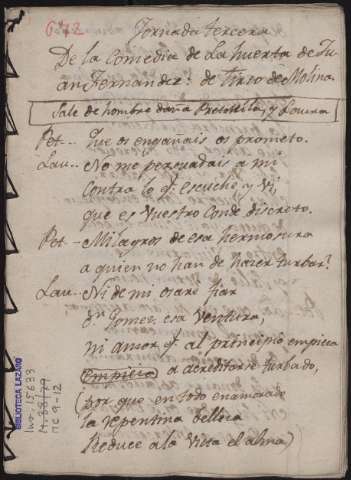 672
Jornada tercera
De la Comedia de La huerta de Ju-
an Fernandez: de Tirso de Molina
Sale de hombre doña Petronila, y Laura
Pet-- Que os engañais os prometo.
Lau-- No me persuadais a mi
Contra lo q.e escuché, y vi,
que es Vuestro Conde discreto.
Pet-- Milagros de esa hermosura
a quien no han de hacer turbar?
Lau-- Ni de mi osaré fiar
D.n Gomez, esa ventura,
ni amor q.e al principio empieza
empieza a acreditarse turbado,
(por que en todo enamorado
la repentina belleza
Reduce a la Vista el alma)
BIBLIOTECA LAZARO
Inv. 15633
MC 9-12